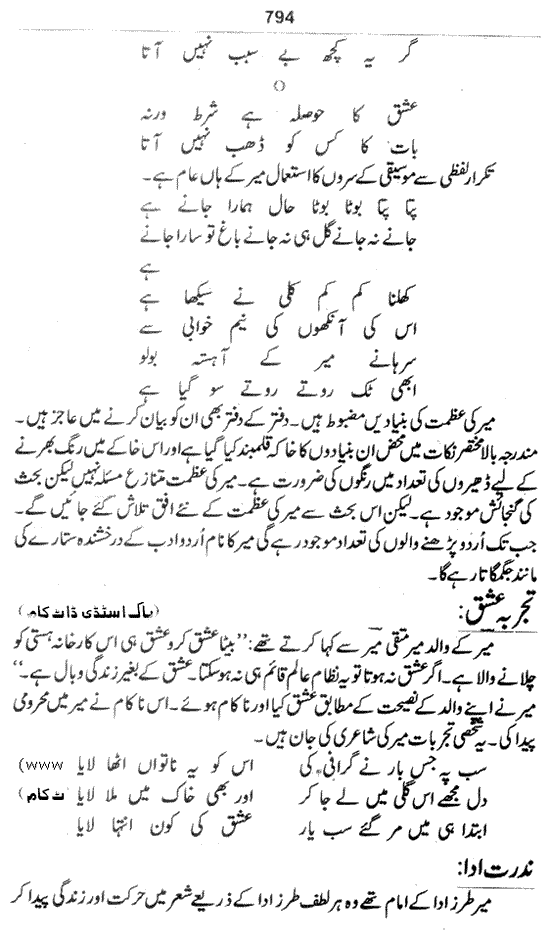 794
گر یہ کچھ بے سبب نہیں آتا
○
عشق کا حوصلہ ہے شرط ورنہ
بات کا کس کو ڈھب نہیں آتا
تکرار لفظی سے موسیقی کے سروں کا استعمال میر کے ہاں عام ہے۔
پتا پتا بوٹا بوٹا حال ہمارا جانے ہے
جانے نہ جانے گل ہی نہ جانے باغ تو سارا جانے
ہے
کھلنا کم کم کلی نے سیکھا ہے
اس کی آنکھوں کی نیم خوابی سے
سرہانے میر کے آہستہ بولو
ابھی ٹک روتے روتے سو گیا ہے
میر کی عظمت کی بنیادیں مضبوط ہیں۔ دفتر کے دفتر بھی ان کو بیان کرنے میں عاجز ہیں۔
مندرجہ بالا مختصر نکات میں محض ان بنیادوں کا خاکہ قلمبند کیا گیا ہے اور اس خاکے میں رنگ بھرنے
کے لیے ڈھیروں کی تعداد میں رنگوں کی ضرورت ہے۔ میر کی عظمت متنازع مسئلہ نہیں لیکن بحث
کی گنجائش موجود ہے۔ لیکن اس بحث سے میر کی عظمت کے نئے افق تلاش کئے جائیں گے۔
جب تک اُردو پڑھنے والوں کی تعداد موجود رہے گی میر کا نام اُردو ادب کے درخشندہ ستارے کی
مانند جگمگاتا رہے گا۔
تجربہ عشق: (پاک اسٹڈی ڈاٹ کام)
میر کے والد میر متقی میر سے کہا کرتے تھے: ’’بیٹا عشق کرو عشق ہی اس کارخانہ ہستی کو
چلانے والا ہے۔ اگر عشق نہ ہوتا تو یہ نظام عالم قائم ہی نہ ہو سکتا۔ عشق کے بغیر زندگی وبال ہے۔‘‘
میر نے اپنے والد کے نصیحت کے مطابق عشق کیا اور ناکام ہوئے۔ اس ناکام نے میر میں محرومی
پیدا کی۔ یہ شخصی تجربات میر کی شاعری کی جان ہیں۔
سب پہ جس بار نے گرانی کی اس کو یہ ناتواں اٹھا لایا (www
دل مجھے اس گلی میں لے جا کر اور بھی خاک میں ملا لایا ٹ کام)
ابتدا ہی میں مر گئے سب یار عشق کی کون انتہا لایا
ندرت ادا:
میر طرز ادا کے امام تھے وہ ہر لطف طرز ادا کے ذریعے شعر میں حرکت اور زندگی پیدا کر